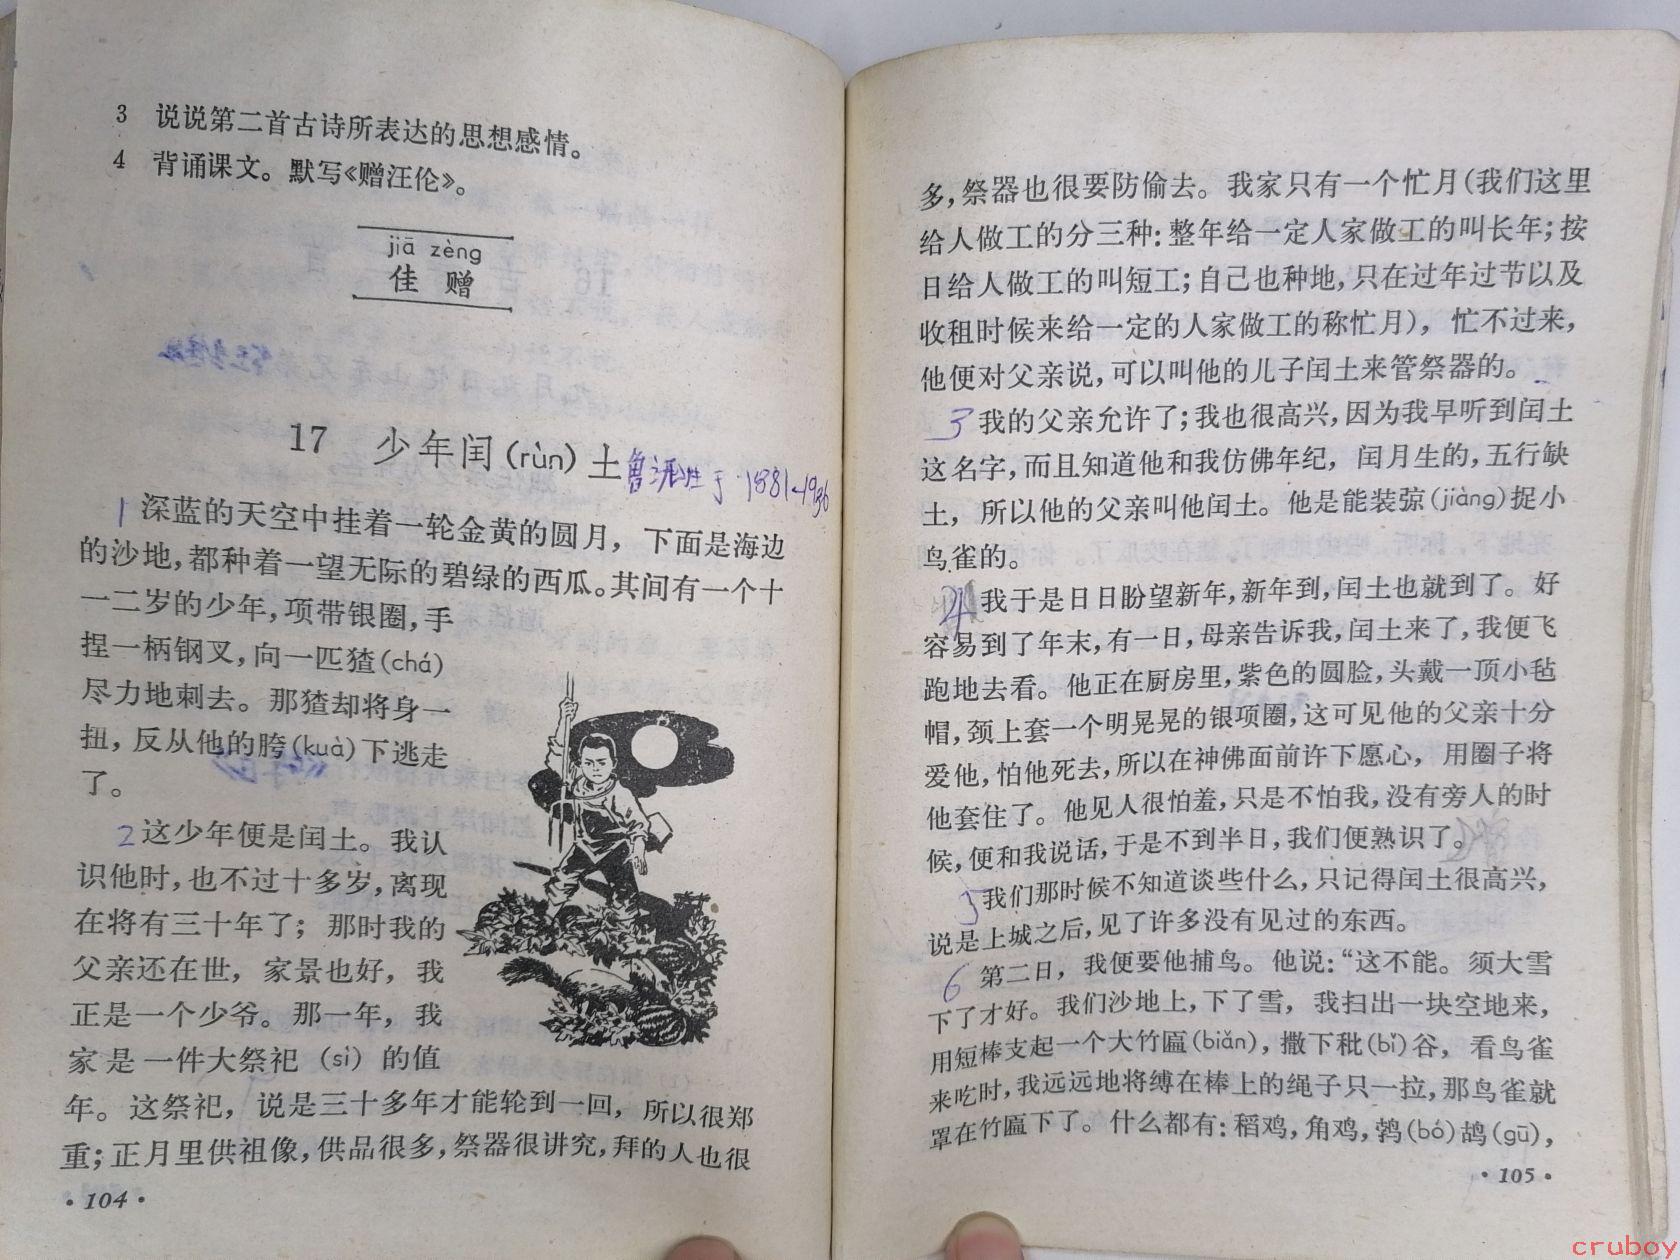 3 说说第二首古诗所表达的思想感情。
4 背诵课文。默写《赠汪伦》。
jiā zèng
佳 赠
17 少年闰(rùn)土
鲁迅 生于·1881-1936
1 深蓝的天空中挂着一轮金黄的圆月，下面是海边
的沙地，都种着一望无际的碧绿的西瓜。其间有一个十
一二岁的少年，项带银圈，手
捏一柄钢叉，向一匹猹(chá)
尽力地刺去。那猹却将身一
扭，反从他的胯(kuà)下逃走
了。
2 这少年便是闰土。我认
识他时，也不过十多岁，离现
在将有三十年了；那时我的
父亲还在世，家景也好，我
正是一个少爷。那一年，我
家是一件大祭祀(sì)的值
年。这祭祀，说是三十多年才能轮到一回，所以很郑
重；正月里供祖像，供品很多，祭器很讲究，拜的人也很
·104·
多，祭器也很要防偷去。我家只有一个忙月(我们这里
给人做工的分三种：整年给一定人家做工的叫长年；按
日给人做工的叫短工；自己也种地，只在过年过节以及
收租时候来给一定的人家做工的称忙月)，忙不过来，
他便对父亲说，可以叫他的儿子闰土来管祭器的。
3 我的父亲允许了；我也很高兴，因为我早听到闰土
这名字，而且知道他和我仿佛年纪，闰月生的，五行缺
土，所以他的父亲叫他闰土。他是能装弶(jiàng)捉小
鸟雀的。
4 我于是日日盼望新年，新年到，闰土也就到了。好
容易到了年末，有一日，母亲告诉我，闰土来了，我便飞
跑地去看。他正在厨房里，紫色的圆脸，头戴一顶小毡
帽，颈上套一个明晃晃的银项圈，这可见他的父亲十分
爱他，怕他死去，所以在神佛面前许下愿心，用圈子将
他套住了。他见人很怕羞，只是不怕我，没有旁人的时
候，便和我说话，于是不到半日，我们便熟识了。
5 我们那时候不知道谈些什么，只记得闰土很高兴，
说是上城之后，见了许多没有见过的东西。
6 第二日，我便要他捕鸟。他说：“这不能。须大雪
下了才好。我们沙地上，下了雪，我扫出一块空地来，
用短棒支起一个大竹匾(biǎn)，撒下秕(bǐ)谷，看鸟雀
来吃时，我远远地将缚在棒上的绳子只一拉，那鸟雀就
罩在竹匾下了。什么都有：稻鸡，角鸡，鹁(bó)鸪(gū)，
·105·
cruboy